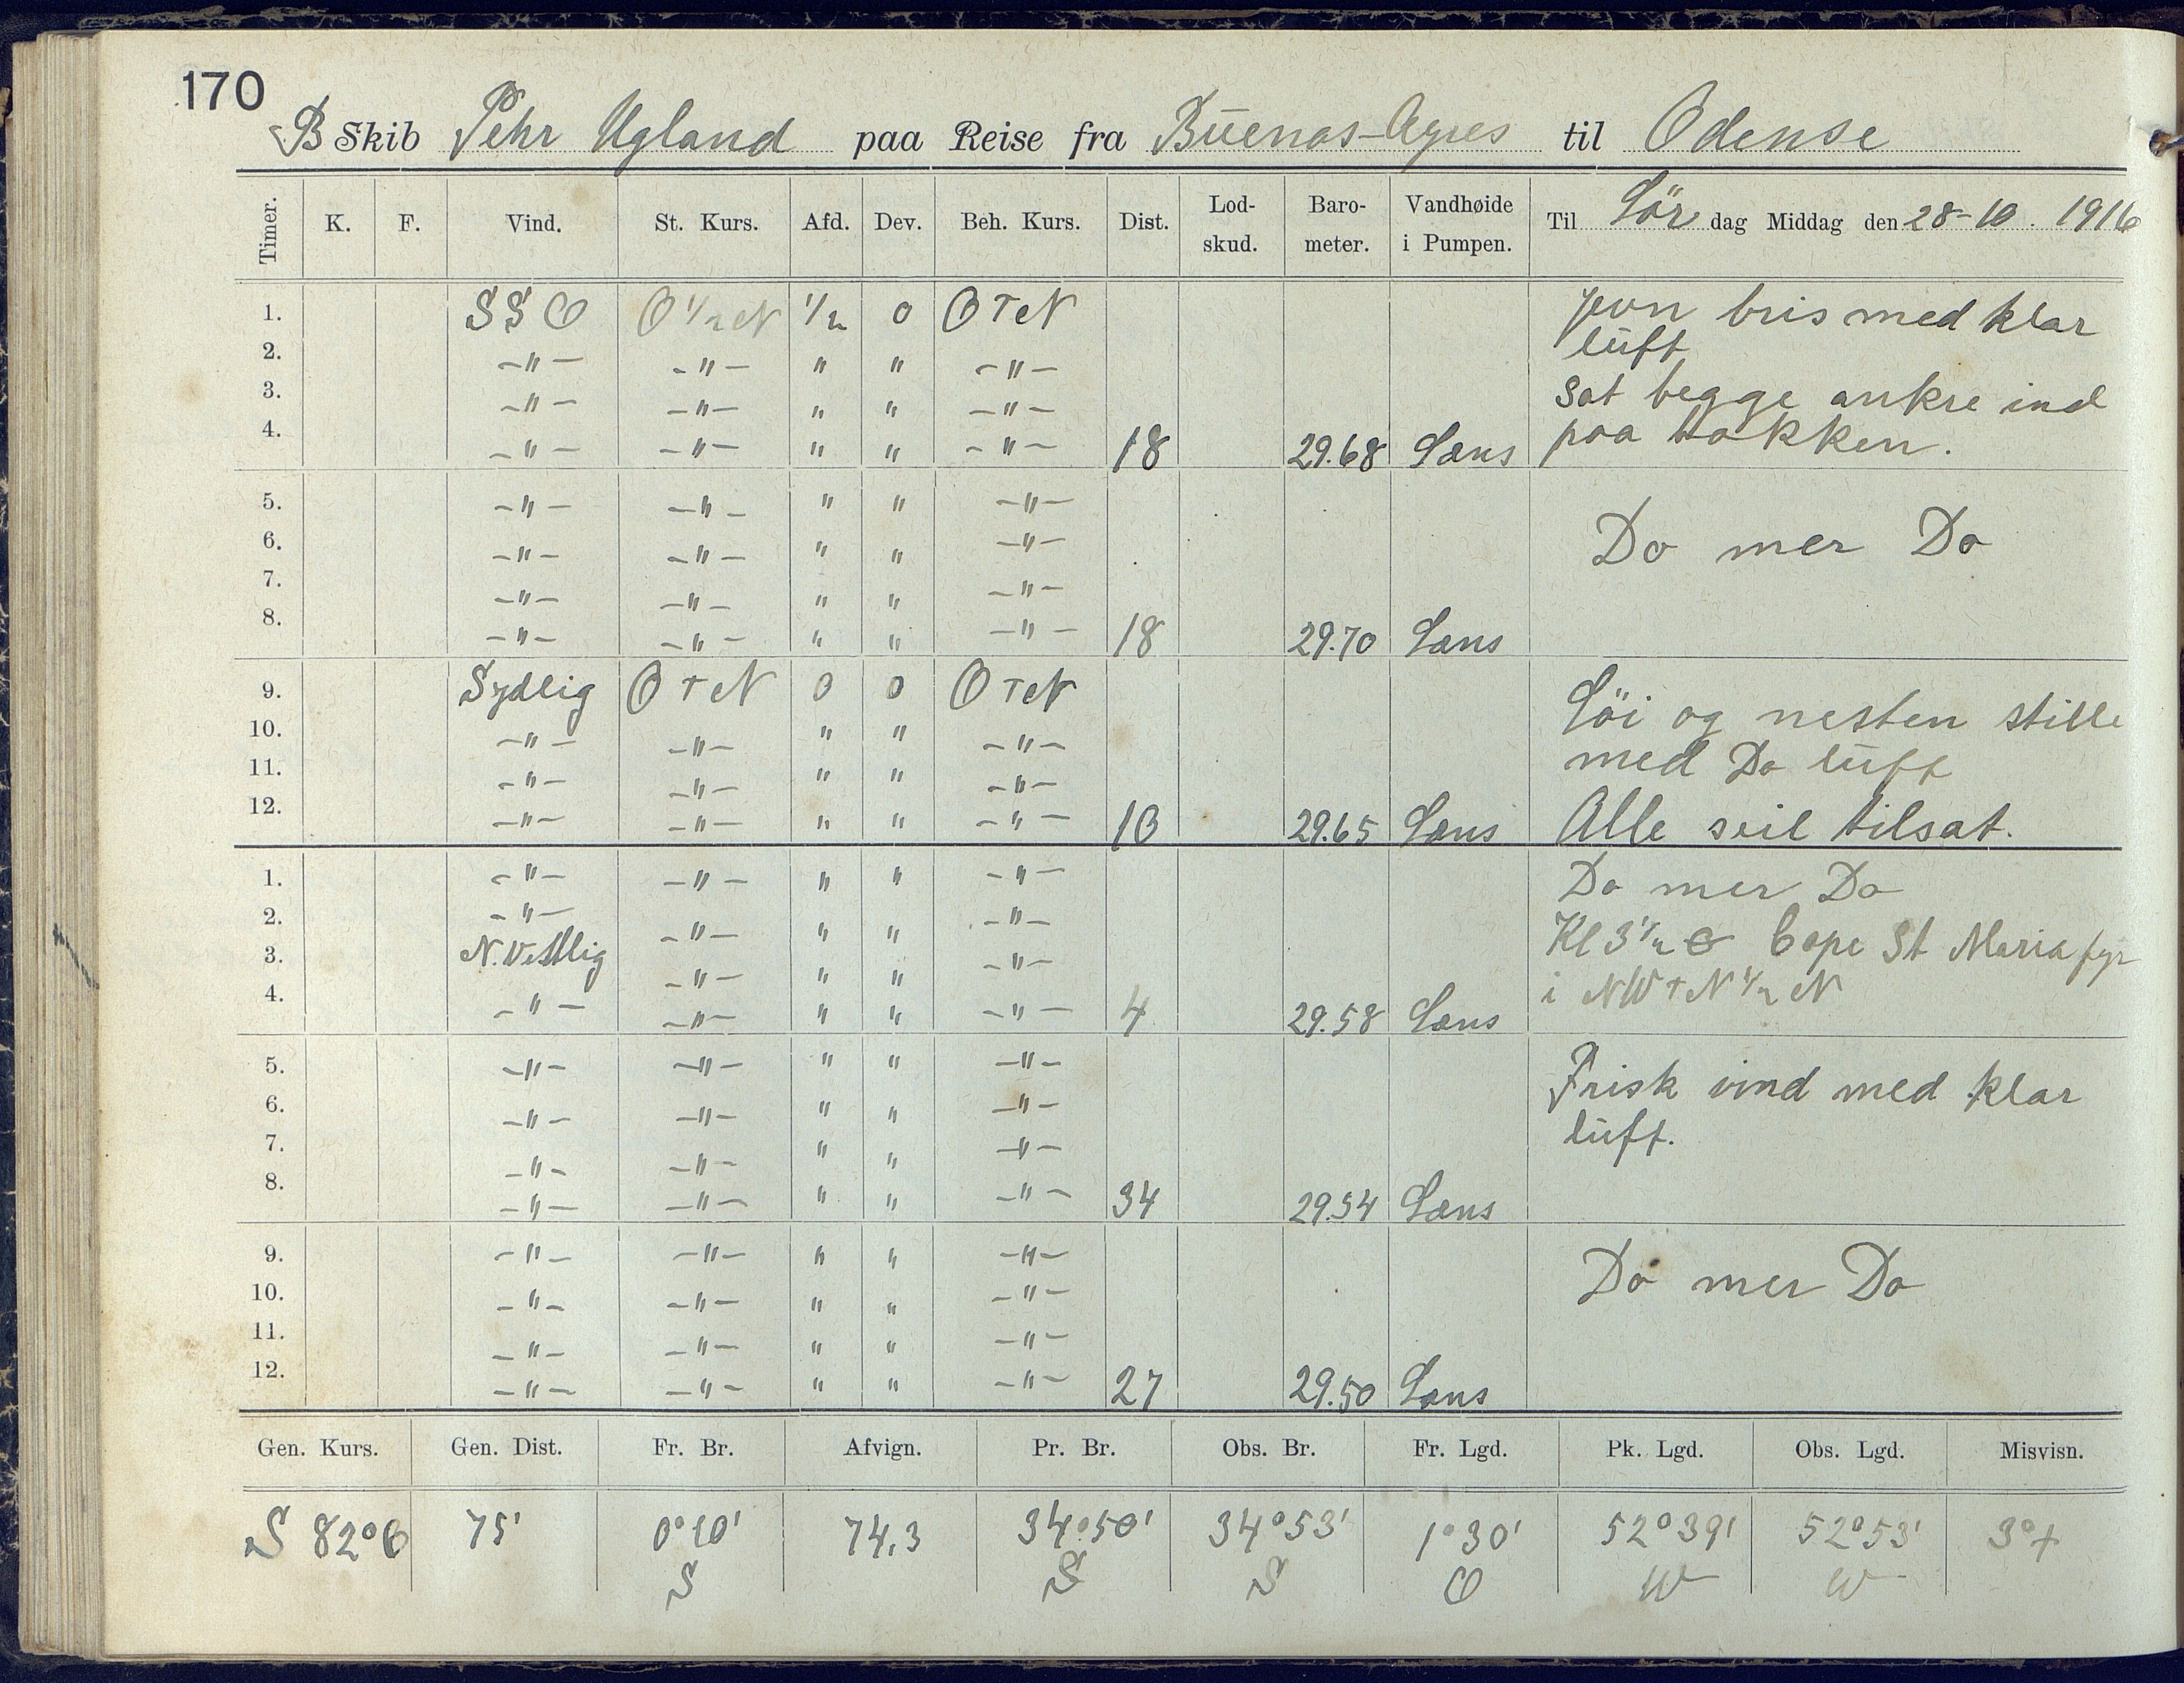 170
B Skib Pehr Ugland paa Reise fra Buenos-Ayres til Odense
Timer. K. F. Vind. St. Kurs. Afd. Dev. Beh. Kurs. Dist. Lod-skud. Baro-meter. Vandhøide i Pumpen. Til Lör dag Middag den 28-10. 1916
1. SSO O 1/2 N 1/2 0 O T N Jevn bris med klar
luft
2. -"- -"- " " -"-
3. -"- -"- " " -"- Sat begge ankre ind
4. -"- -"- " " -"- 18 29.68 Læns paa bakken.
5. -"- -"- " " -"-
6. -"- -"- " " -"- Do mer Do
7. -"- -"- " " -"-
8. -"- -"- " " -"- 18 29.70 Læns
9. Sydlig O T N 0 0 O T N Löi og nesten stille
10. -"- -"- " " -"-
11. -"- -"- " " -"- med Do luft
12. -"- -"- " " -"- 10 29.65 Læns Alle seil tilsat.
1. -"- -"- " " -"- Do mer Do
2. -"- -"- " " -"- Kl 3 1/2 Cape St Maria fyr
3. N.Vestlig -"- " " -"-
4. -"- -"- " " -"- 4 29.58 Læns i NW T N 1/2 N
5. -"- -"- " " -"- Frisk vind med klar
6. -"- -"- " " -"- luft.
7. -"- -"- " " -"-
8. -"- -"- " " -"- 34 29.54 Læns
9. -"- -"- " " -"- Do mer Do
10. -"- -"- " " -"-
11. -"- -"- " " -"-
12. -"- -"- " " -"- 27 29.50 Læns
Gen. Kurs. Gen. Dist. Fr. Br. Afvign. Pr. Br. Obs. Br. Fr. Lgd. Pk. Lgd. Obs. Lgd. Misvisn.
S 82° O 75' 0°10' 74,3 34°50' 34°53' 1°30' 52°39' 52°53' 3°+
S S S O W W